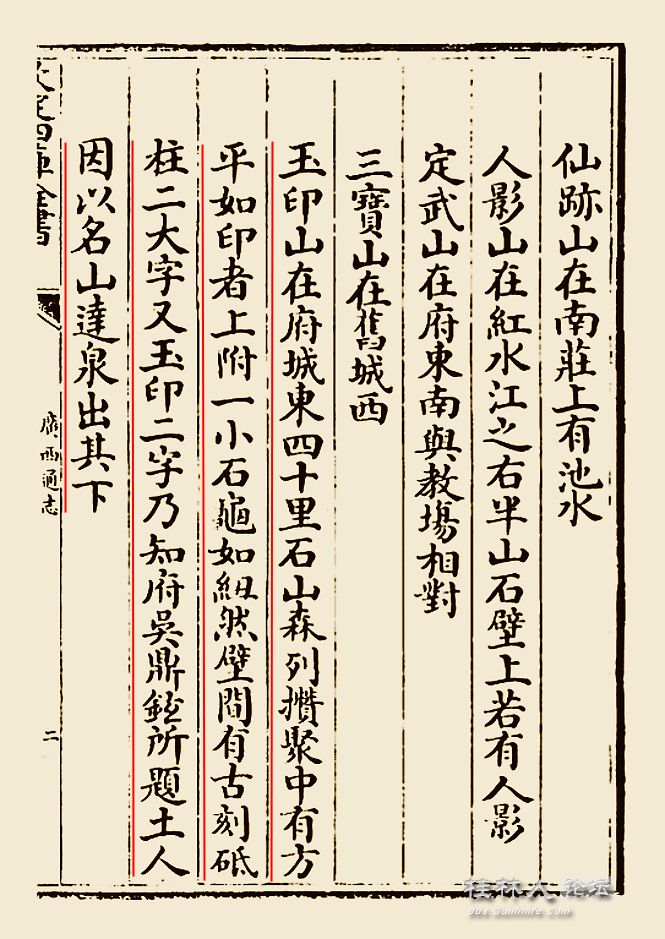 仙跡山在南莊上有池水
人影山在紅水江之右半山石壁上若有人影
定武山在府東南與教塲相對
三寶山在舊城西
玉印山在府城東四十里石山森列攢聚中有方
平如印者上附一小石龜如紐然壁間有古刻砥
柱二大字又玉印二字乃知府吳鼎鉉所題土人
因以名山達泉出其下
欽定四庫全書
廣西通志
二
桂林人论坛